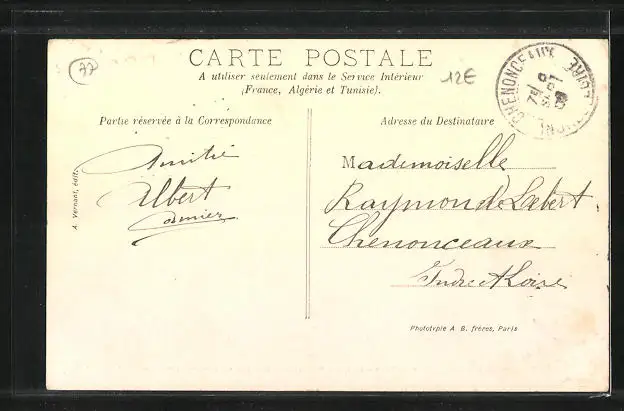 77
CARTE POSTALE
A utiliser seulement dans le Service Intérieur
(France, Algérie et Tunisie).
12€
CHENONCEAUX
Partie réservée à la Correspondance
Adresse du Destinataire
Amitié
Albert
Mademoiselle
Raymonde Labert
Chenonceaux
Indre et Loire
A. Vernant, édit.
Phototypie A. B. frères, Paris